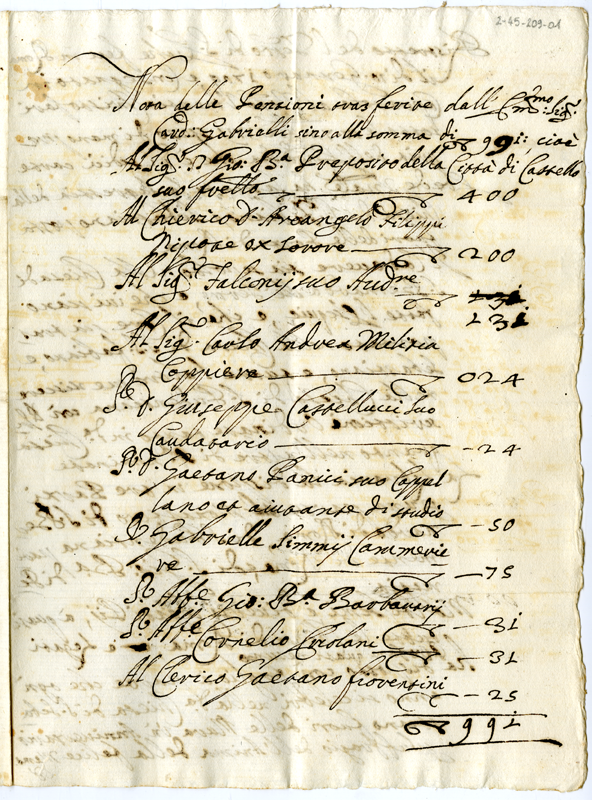 2-45-209-01
Nota delle Pensioni trasferite dall' Em.mo Sig.
Card: Gabrielli sino alla somma di 991: cioè
Al Sig. D. Gio: Ba. Preposito della Città di Castello
suo frello 400
Al Chierico d. Arcangelo Filippi
Nipote ex sorore 200
Al Sig.r Falconij suo Aud.re 131
131
Al Sig. Carlo Andrea Milizia
Coppiere 024
P. D. Giuseppe Castellucci suo
Caudatario 24
P. D. Gaetano Panici suo Cappel
lano et aiutante di studio
50
P. Gabrielle Simmij Cammerie
re 75
P. Affe. Gio: Ba. Barbaurij
31
P. Affe. Cornelio Criolani
31
Al Clerico Gaetano fiorentini
25
991